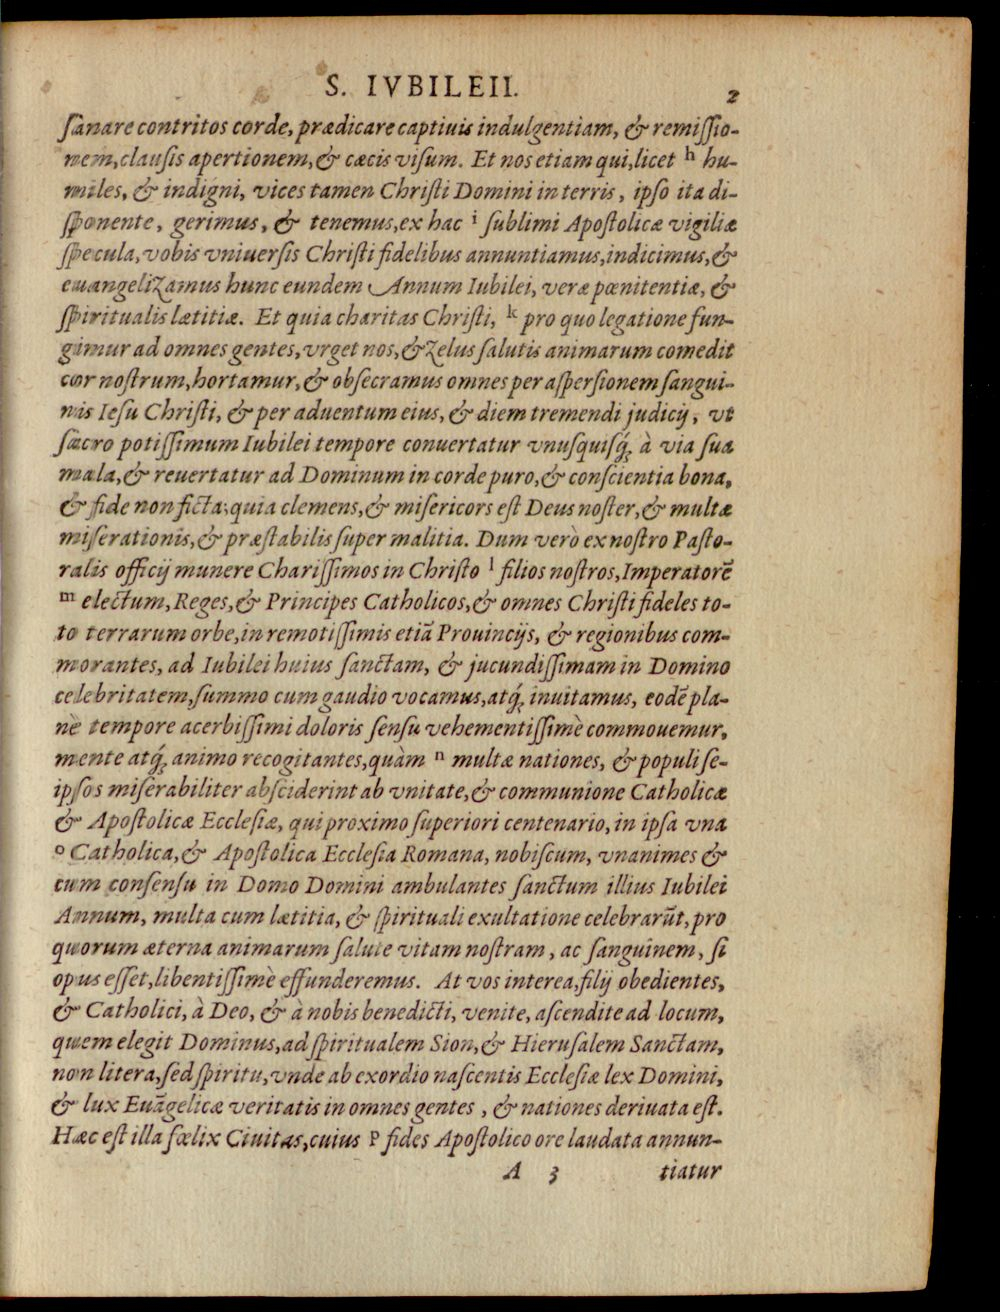 S. IVBILEII.
2
ſanare contritos corde, prædicare captiuis indulgentiam, & remiſſio-
nem, clauſis apertionem, & cæcis viſum. Et nos etiam qui, licet h hu-
miles, & indigni, vices tamen Chriſti Domini in terris, ipſo ita di-
ſponente, gerimus, & tenemus, ex hac i ſublimi Apoſtolicæ vigiliæ
ſpecula, vobis vniuerſis Chriſti fidelibus annuntiamus, indicimus, &
euangelizamus hunc eundem Annum Iubilei, veræ pœnitentiæ, &
ſpiritualis lætitiæ. Et quia charitas Chriſti, k pro quo legatione fun-
gimur ad omnes gentes, vrget nos, & zelus ſalutis animarum comedit
cor noſtrum, hortamur, & obſecramus omnes per aſperſionem ſangui-
nis Ieſu Chriſti, & per aduentum eius, & diem tremendi judicij, vt
ſacro potiſſimum Iubilei tempore conuertatur vnuſquiſq́; à via ſua
mala, & reuertatur ad Dominum in corde puro, & conſcientia bona,
& fide non ficta; quia clemens, & miſericors eſt Deus noſter, & multæ
miſerationis, & præſtabilis ſuper malitia. Dum verò ex noſtro Paſto-
ralis officij munere Chariſſimos in Chriſto l filios noſtros, Imperatorē
m electum, Reges, & Principes Catholicos, & omnes Chriſti fideles to-
to terrarum orbe, in remotiſſimis etiā Prouincijs, & regionibus com-
morantes, ad Iubilei huius ſanctam, & jucundiſſimam in Domino
celebritatem, ſummo cum gaudio vocamus, atq́; inuitamus, eodē pla-
nè tempore acerbiſſimi doloris ſenſu vehementiſſimè commouemur,
mente atq́; animo recogitantes, quàm n multæ nationes, & populi ſe-
ipſos miſerabiliter abſciderint ab vnitate, & communione Catholicæ
& Apoſtolicæ Eccleſiæ, qui proximo ſuperiori centenario, in ipſa vna
o Catholica, & Apoſtolica Eccleſia Romana, nobiſcum, vnanimes &
cum conſenſu in Domo Domini ambulantes ſanctum illius Iubilei
Annum, multa cum lætitia, & ſpirituali exultatione celebrarūt, pro
quorum æterna animarum ſalute vitam noſtram, ac ſanguinem, ſi
opus eſſet, libentiſſimè effunderemus. At vos interea, filij obedientes,
& Catholici, à Deo, & à nobis benedicti, venite, aſcendite ad locum,
quem elegit Dominus, ad ſpiritualem Sion, & Hieruſalem Sanctam,
non litera, ſed ſpiritu, vnde ab exordio naſcentis Eccleſiæ lex Domini,
& lux Euāgelicæ veritatis in omnes gentes, & nationes deriuata eſt.
Hæc eſt illa fœlix Ciuitas, cuius p fides Apoſtolico ore laudata annun-
A 3 tiatur